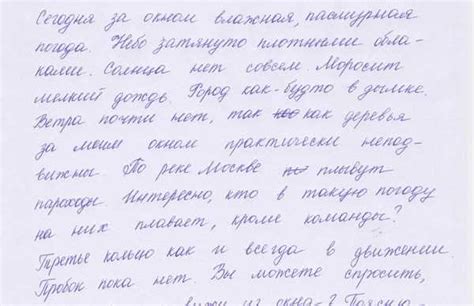 Сегодня за окном влажная, пасмурная
погода. Небо затянуто плотными обла-
ками. Солнца нет совсем. Моросит
мелкий дождь. Город как-будто в дымке.
Ветра почти нет, так как деревья
за моим окном практически непод-
вижны. По реке Москве плывут
пароходы. Интересно, кто в такую погоду
на них плавает, кроме команды?
Третье кольцо как и всегда в движении.
Пробок пока нет. Вы можете спросить,
вижу из окна-? Поясню